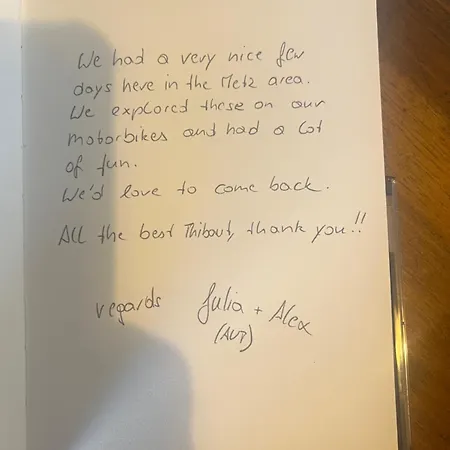 We had a very nice few
days here in the Metz area.
We explored these on our
motorbikes and had a lot
of fun.
We'd love to come back.
All the best Thibout, thank you!!
regards Julia + Alex
(AUT)